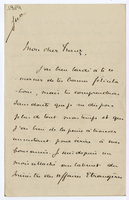 Mon cher
J'ai bien tardé à te re-
mercier de tes bonnes félicita-
tions, mais tu comprendras
sans doute que je ne dispose
plus de tout mon temps et que
j'ai bien de la peine à trouver
un instant pour écrire à mes
Je suis depuis un
mois attaché au cabinet du
Ministre des affaires Etrangères